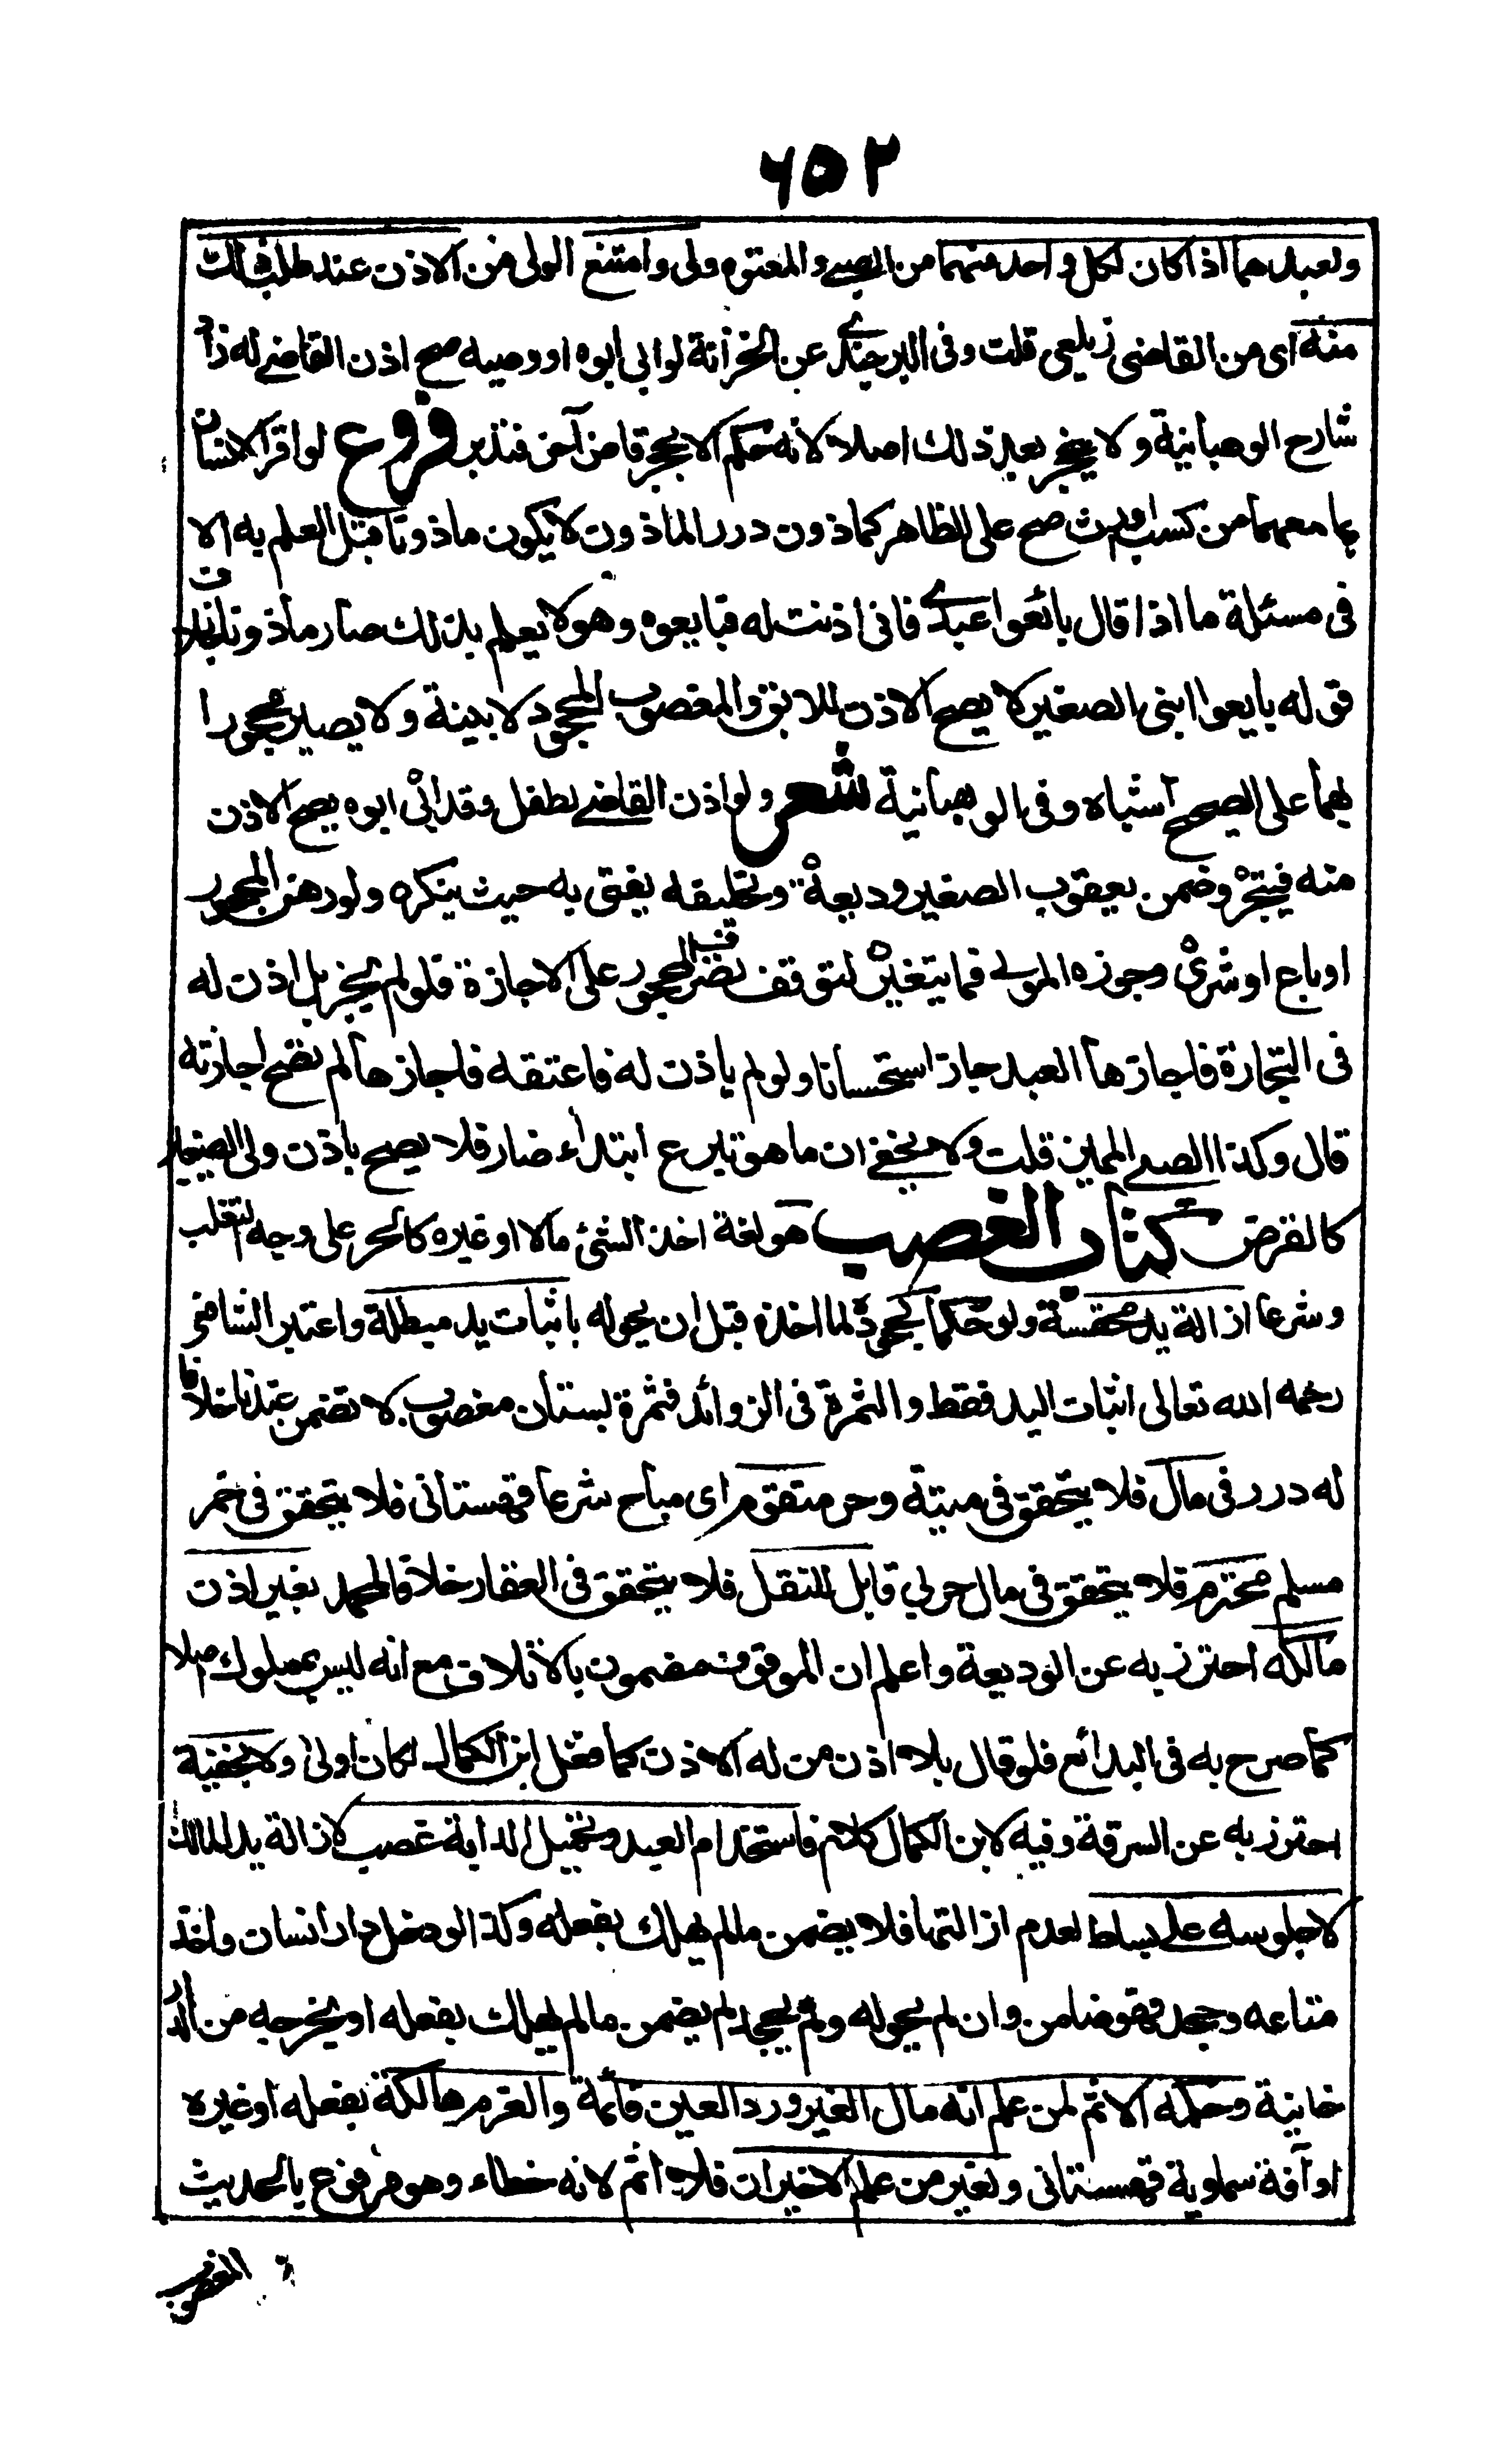 ٦٥٢
ولعبدهما اذا كان لكل واحد منهما من الصبى والمعتوه ولى وامتنع الولى من الاذن عند طلب ذلك
منه اى من القاضى زيلعى قلت وفى البرجندى عن الخزانة لو ابى ابوه او وصيه صح اذن القاضى له زاد
شارح الوهبانية ولا ينحجر بعد ذلك اصلا لانه حكم الا بحجر قاض آخر فتدبر فروع لو اقر الانسان
بما معهما من كسب او ارث صح على الظاهر كماذون درر الماذون لا يكون ماذونا قبل العلم به الا
فى مسئلة ما اذا قال بائعوا عبدى فانى اذنت له فبايعوه وهو لا يعلم بذلك صار ماذونا بخلاف
قوله بايعوا ابنى الصغير لا يصح الاذن للابق والمغصوب المجحود لا بينة ولا يصير محجورا
بهما على الصحيح اشباه وفى الوهبانية شعر ولو اذن القاضى لطفل وقد ابى ابوه يصح الاذن
منه فيتجر وضمن يعقوب الصغير وديعة وتحليفه يفتى به حيث ينكره ولو رهن المحجور
او باع او شرى وجوزه المولى فما يتغير لتوقف تصرف المحجور على الاجازة فلو لم يجز بل اذن له
فى التجارة فاجازها العبد جاز استحسانا ولو لم ياذن له فاعتقه فاجازها لم تصح اجازته
قال وكذا الصبى المميز قلت ولا يخفى ان ما هو تبرع ابتداء ضار فلا يصح باذن ولى الصغير
كالقرض كتاب الغصب هو لغة اخذ الشئ مالا او غيره كالحر على وجه التغلب
وشرعا ازالة يد محقة ولو حكما كجحوده لما اخذه قبل ان يحوله باثبات يد مبطلة واعتبر الشافعى
رحمه الله تعالى اثبات اليد فقط والثمرة فى الزوائد فثمرة بستان مغصوب لا تضمن عندنا خلافا
له درر فى مال فلا يتحقق فى ميتة وحر متقوم اى مباح شرعا قهستانى فلا يتحقق فى خمر
مسلم محترم فلا يتحقق فى مال حربى قابل للنقل فلا يتحقق فى العقار خلافا لمحمد بغير اذن
مالكه احترز به عن الوديعة واعلم ان الموقوف مضمون بالاتلاف مع انه ليس بمملوك اصلا
كما صرح به فى البدائع فلو قال بلا اذن من له الاذن كما فعل ابن الكمال لكان اولى ولا بخفية
احترز به عن السرقة وفيه لابن الكمال كلام فاستخدام العبد وتحميل الدابة غصب لازالة يد المالك
لا جلوسه على بساط لعدم ازالتها فلا يضمن مالم يهلك بفعله وكذا لو دخل دار انسان واخذ
متاعه وجحد فهو ضامن وان لم يحوله ولم يجحد لم يضمن مالم يهلك بفعله او يخرجه من الدار
خانية وحكمه الاثم لمن علم انه مال الغير ورد العين قائمة والغرم هالكة بفعله او غيره
او آفة سماوية قهستانى ولغير من علم الاخيران فلا اثم لانه خطاء وهو مرفوع بالحديث
المغصوب